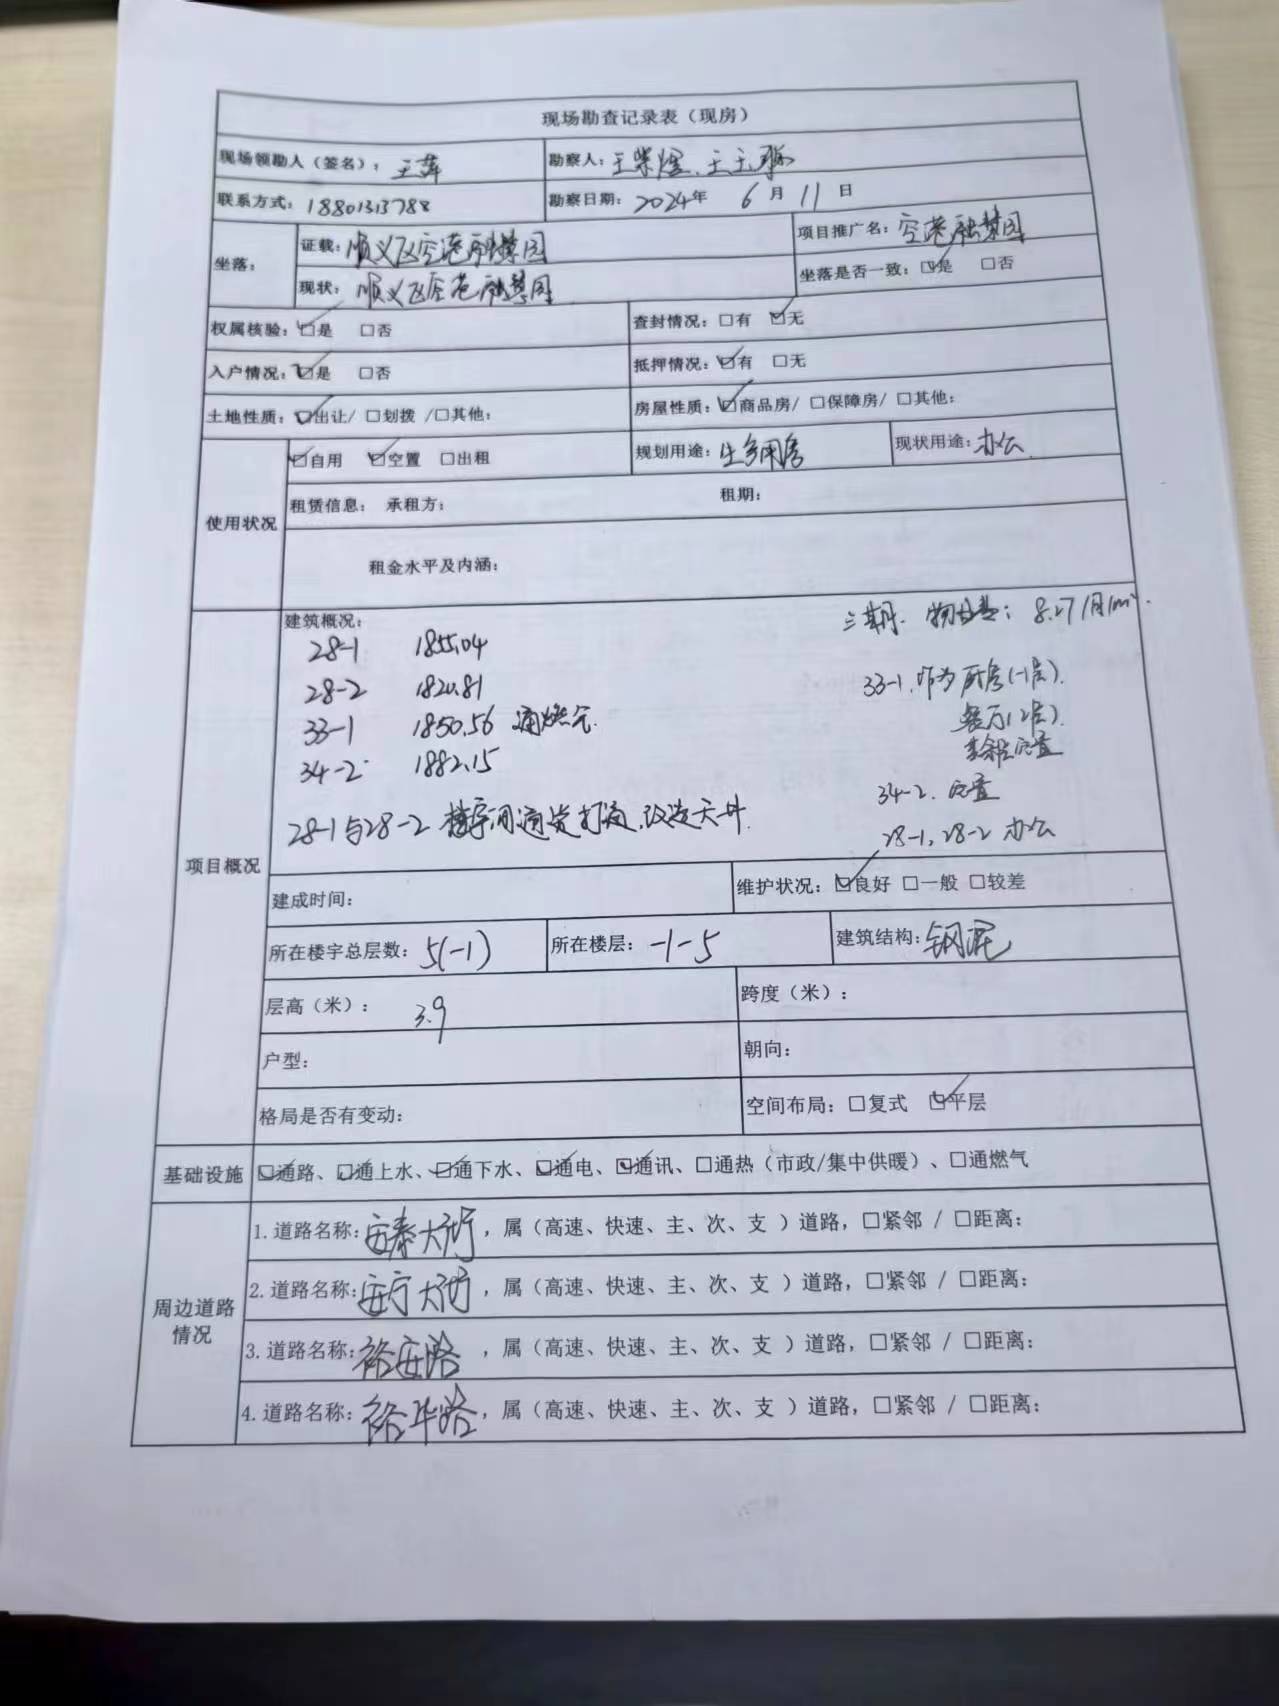 现场勘查记录表（现房）
现场领勘人（签名）：王萍 勘察人：王紫煜、王玉
联系方式：18801313788 勘察日期：2024年 6月 11日
坐落： 证载：顺义区空港融慧园 项目推广名：空港融慧园
现状：顺义区空港融慧园 坐落是否一致：☑是 □否
权属核验：☑是 □否 查封情况：□有 ☑无
入户情况：☑是 □否 抵押情况：☑有 □无
土地性质：☑出让/ □划拨 /□其他： 房屋性质：☑商品房/ □保障房/ □其他：
使用状况 ☑自用 ☑空置 □出租 规划用途：生产用房 现状用途：办公
租赁信息： 承租方： 租期：
租金水平及内涵：
项目概况 建筑概况： 三期. 物业费：8.27/月/m².
28-1 1855.04
28-2 1820.81 33-1.作为厨房(-1层).
33-1 1850.56 通燃气. 餐厅(2层).
34-2 1882.15 其余空置
34-2. 空置
28-1与28-2 楼宇间通道打通,改造天井.
28-1, 28-2 办公
建成时间： 维护状况：☑良好 □一般 □较差
所在楼宇总层数：5(-1) 所在楼层：-1-5 建筑结构：钢混
层高（米）： 3.9 跨度（米）：
户型： 朝向：
格局是否有变动： 空间布局：□复式 ☑平层
基础设施 ☑通路、☑通上水、☑通下水、☑通电、☑通讯、□通热（市政/集中供暖）、□通燃气
周边道路情况 1.道路名称：安泰大街，属（高速、快速、主、次、支 ）道路，□紧邻 / □距离：
2.道路名称：安宁大街，属（高速、快速、主、次、支 ）道路，□紧邻 / □距离：
3.道路名称：裕安路，属（高速、快速、主、次、支 ）道路，□紧邻 / □距离：
4.道路名称：裕华路，属（高速、快速、主、次、支 ）道路，□紧邻 / □距离：